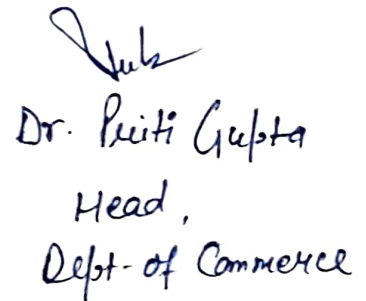 Dr. Priti Gupta
Head,
Dept- of Commerce